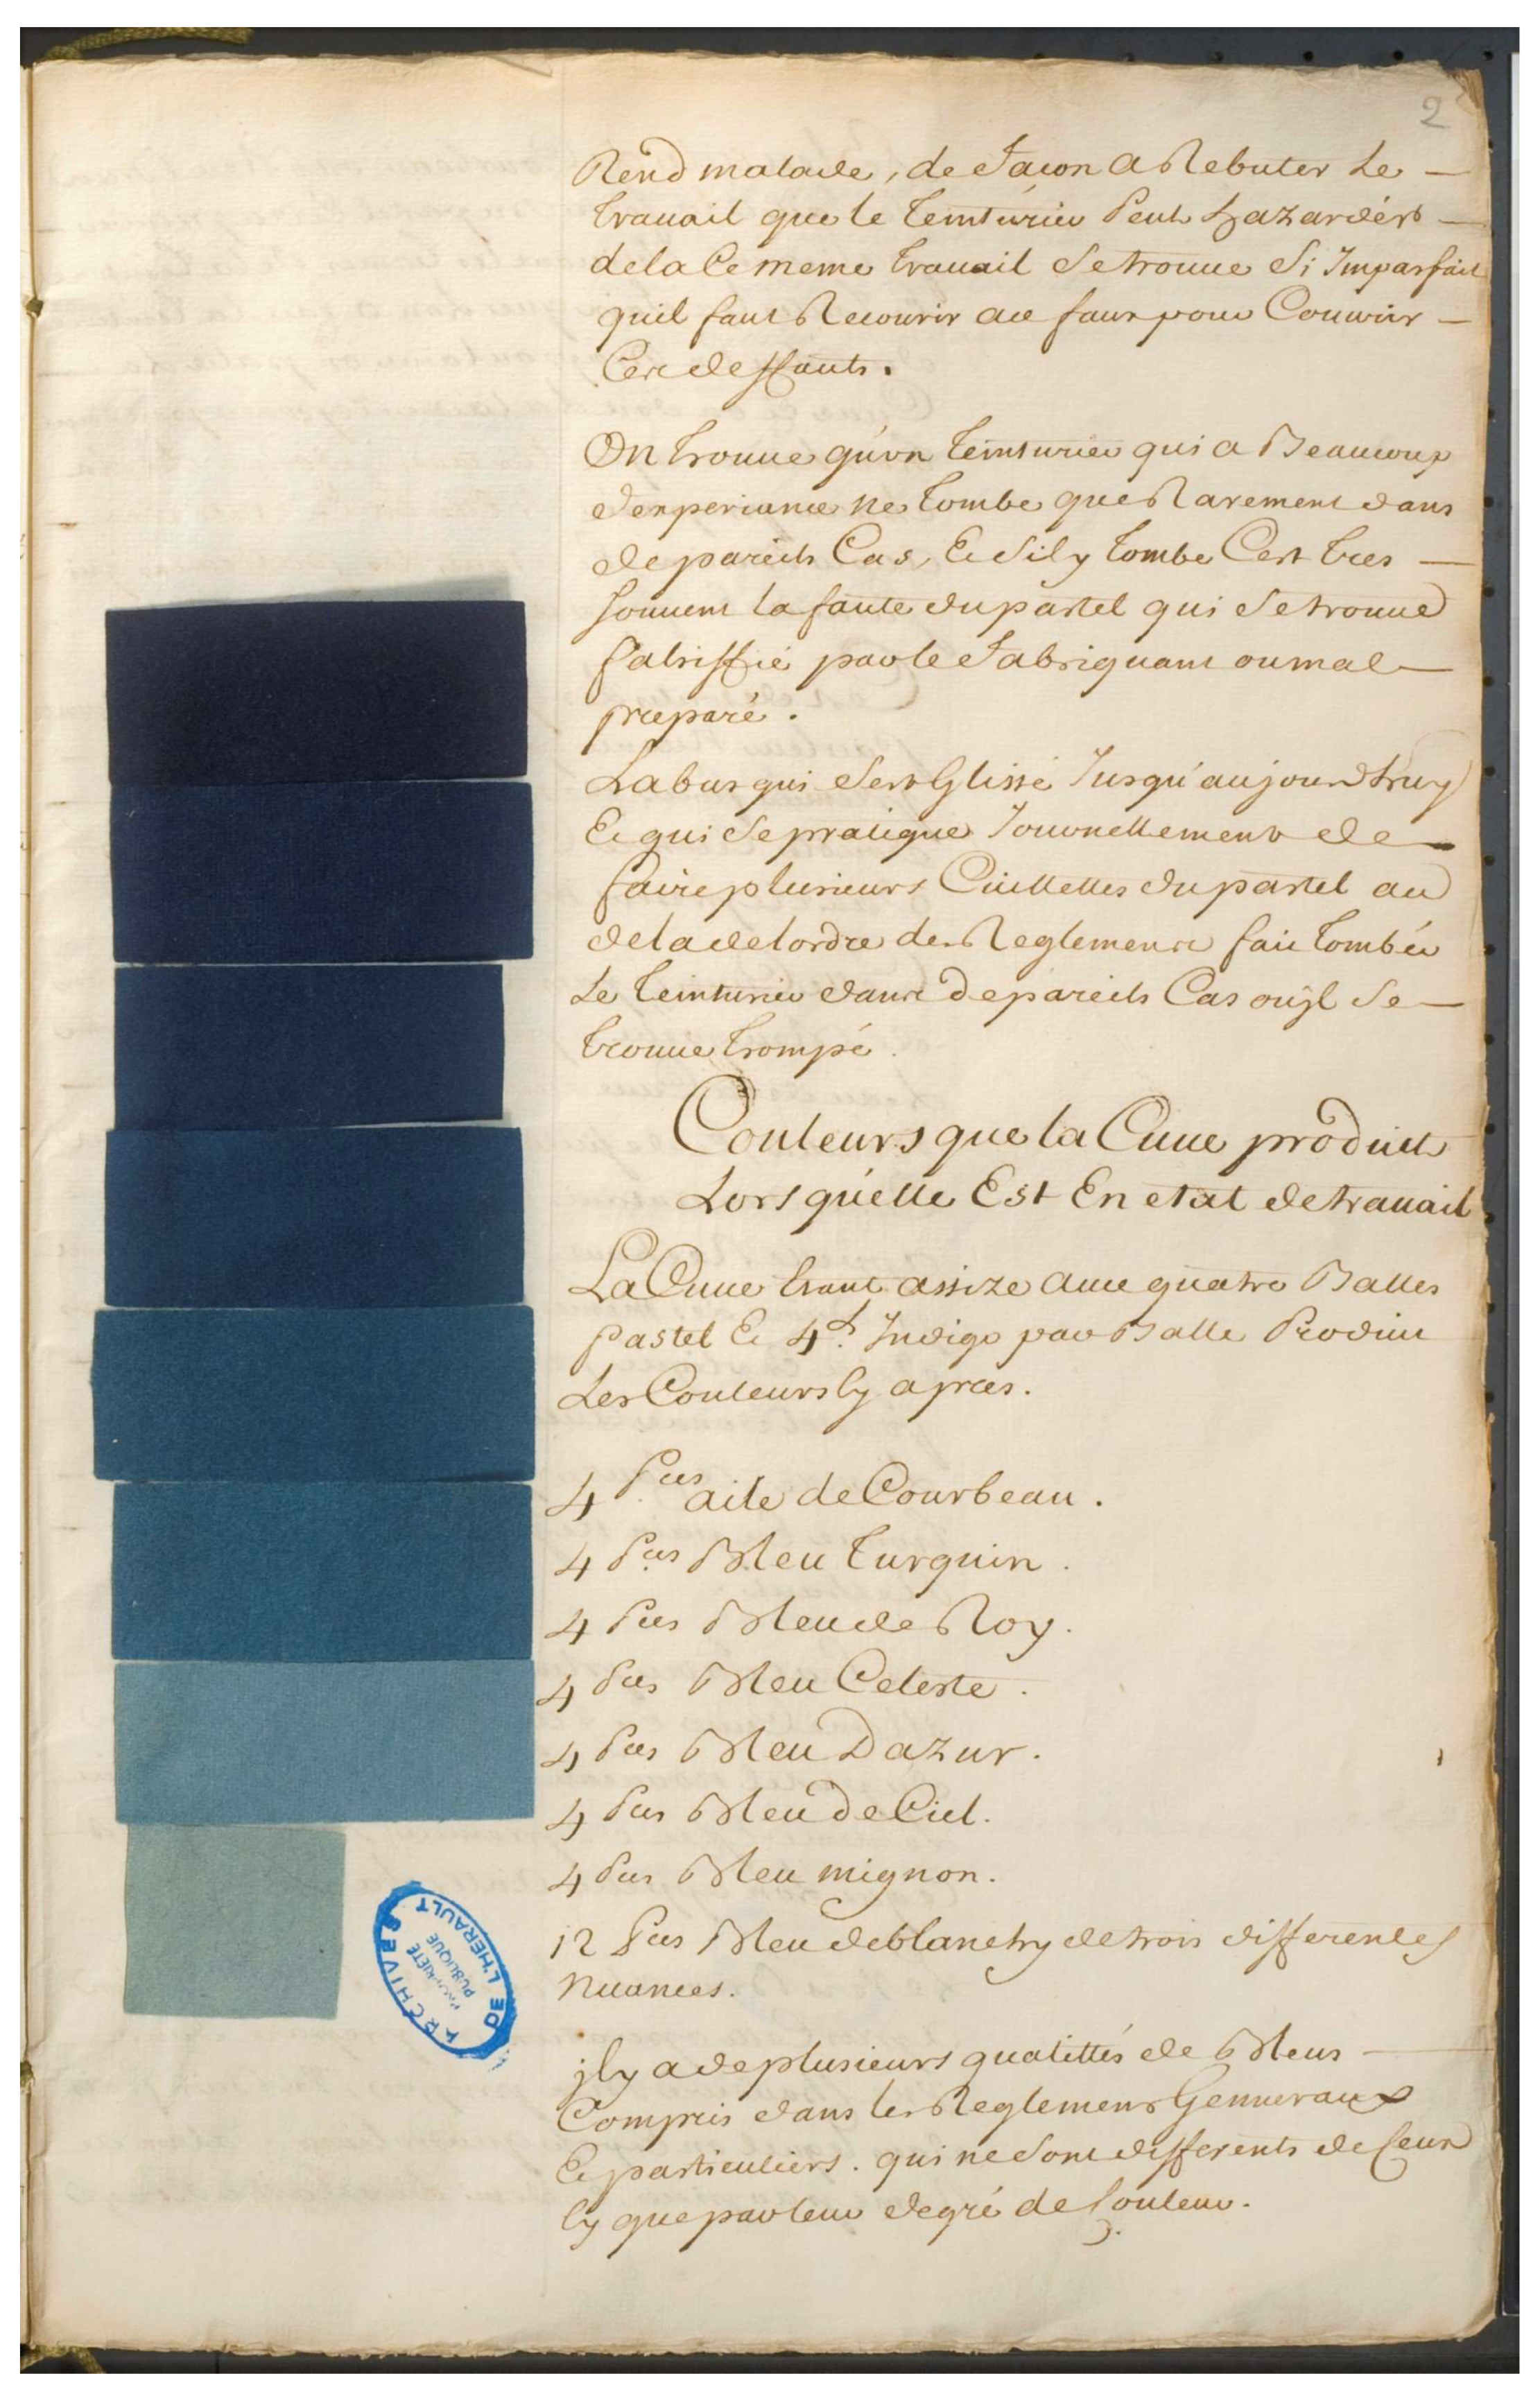 2
Rend malade, de facon a Rebuter Le
travail que le teinturier Peut hazardér
dela Ce meme travail Setrouve Si Imparfait
quil faut Recourir au faux pour Couvrir
Ces deffauts.
On trouve qu'un teinturier qui a Beaucoup
dexperiance ne tombe que Rarement dans
de pareils Cas, Et Sil y tombe Cest tres
souvent la faute du pastel qui Se trouve
falsiffié par le fabriquant ou mal
preparé.
Labus qui Sest Glissé Jusqu'aujourdhuy
Et qui Se pratique Journellement de
faire plusieurs Cuillettes du pastel au
dela de lordre des Reglements fait tombér
Le teinturier dans de pareils Cas ou jl Se
trouve trompé.
Couleurs que la Cuve produit
Lors quelle Est En etat de travail
La Cuve Etant assize avec quatre Balles
Pastel Et 4 L. Indigo par Balle Produit
Les Couleurs Cy apres.
4 Pces aile de Courbeau.
4 Pces Bleu turquin.
4 Pces Bleu de Roy.
4 Pces Bleu Celeste.
4 Pces Bleu Dazur.
4 Pces Bleu de Ciel.
4 Pces Bleu mignon.
12 Pces Bleu deblanchy de trois differentes
nuances.
jl y a de plusieurs qualittés de Bleus
Compris dans les Reglements Genneraux
Et particuliers. qui ne Sont differents de Ceux
Cy que par leur degré de Couleur.
ARCHIVES DE L'HERAULT
PROPRIÉTÉ
PUBLIQUE